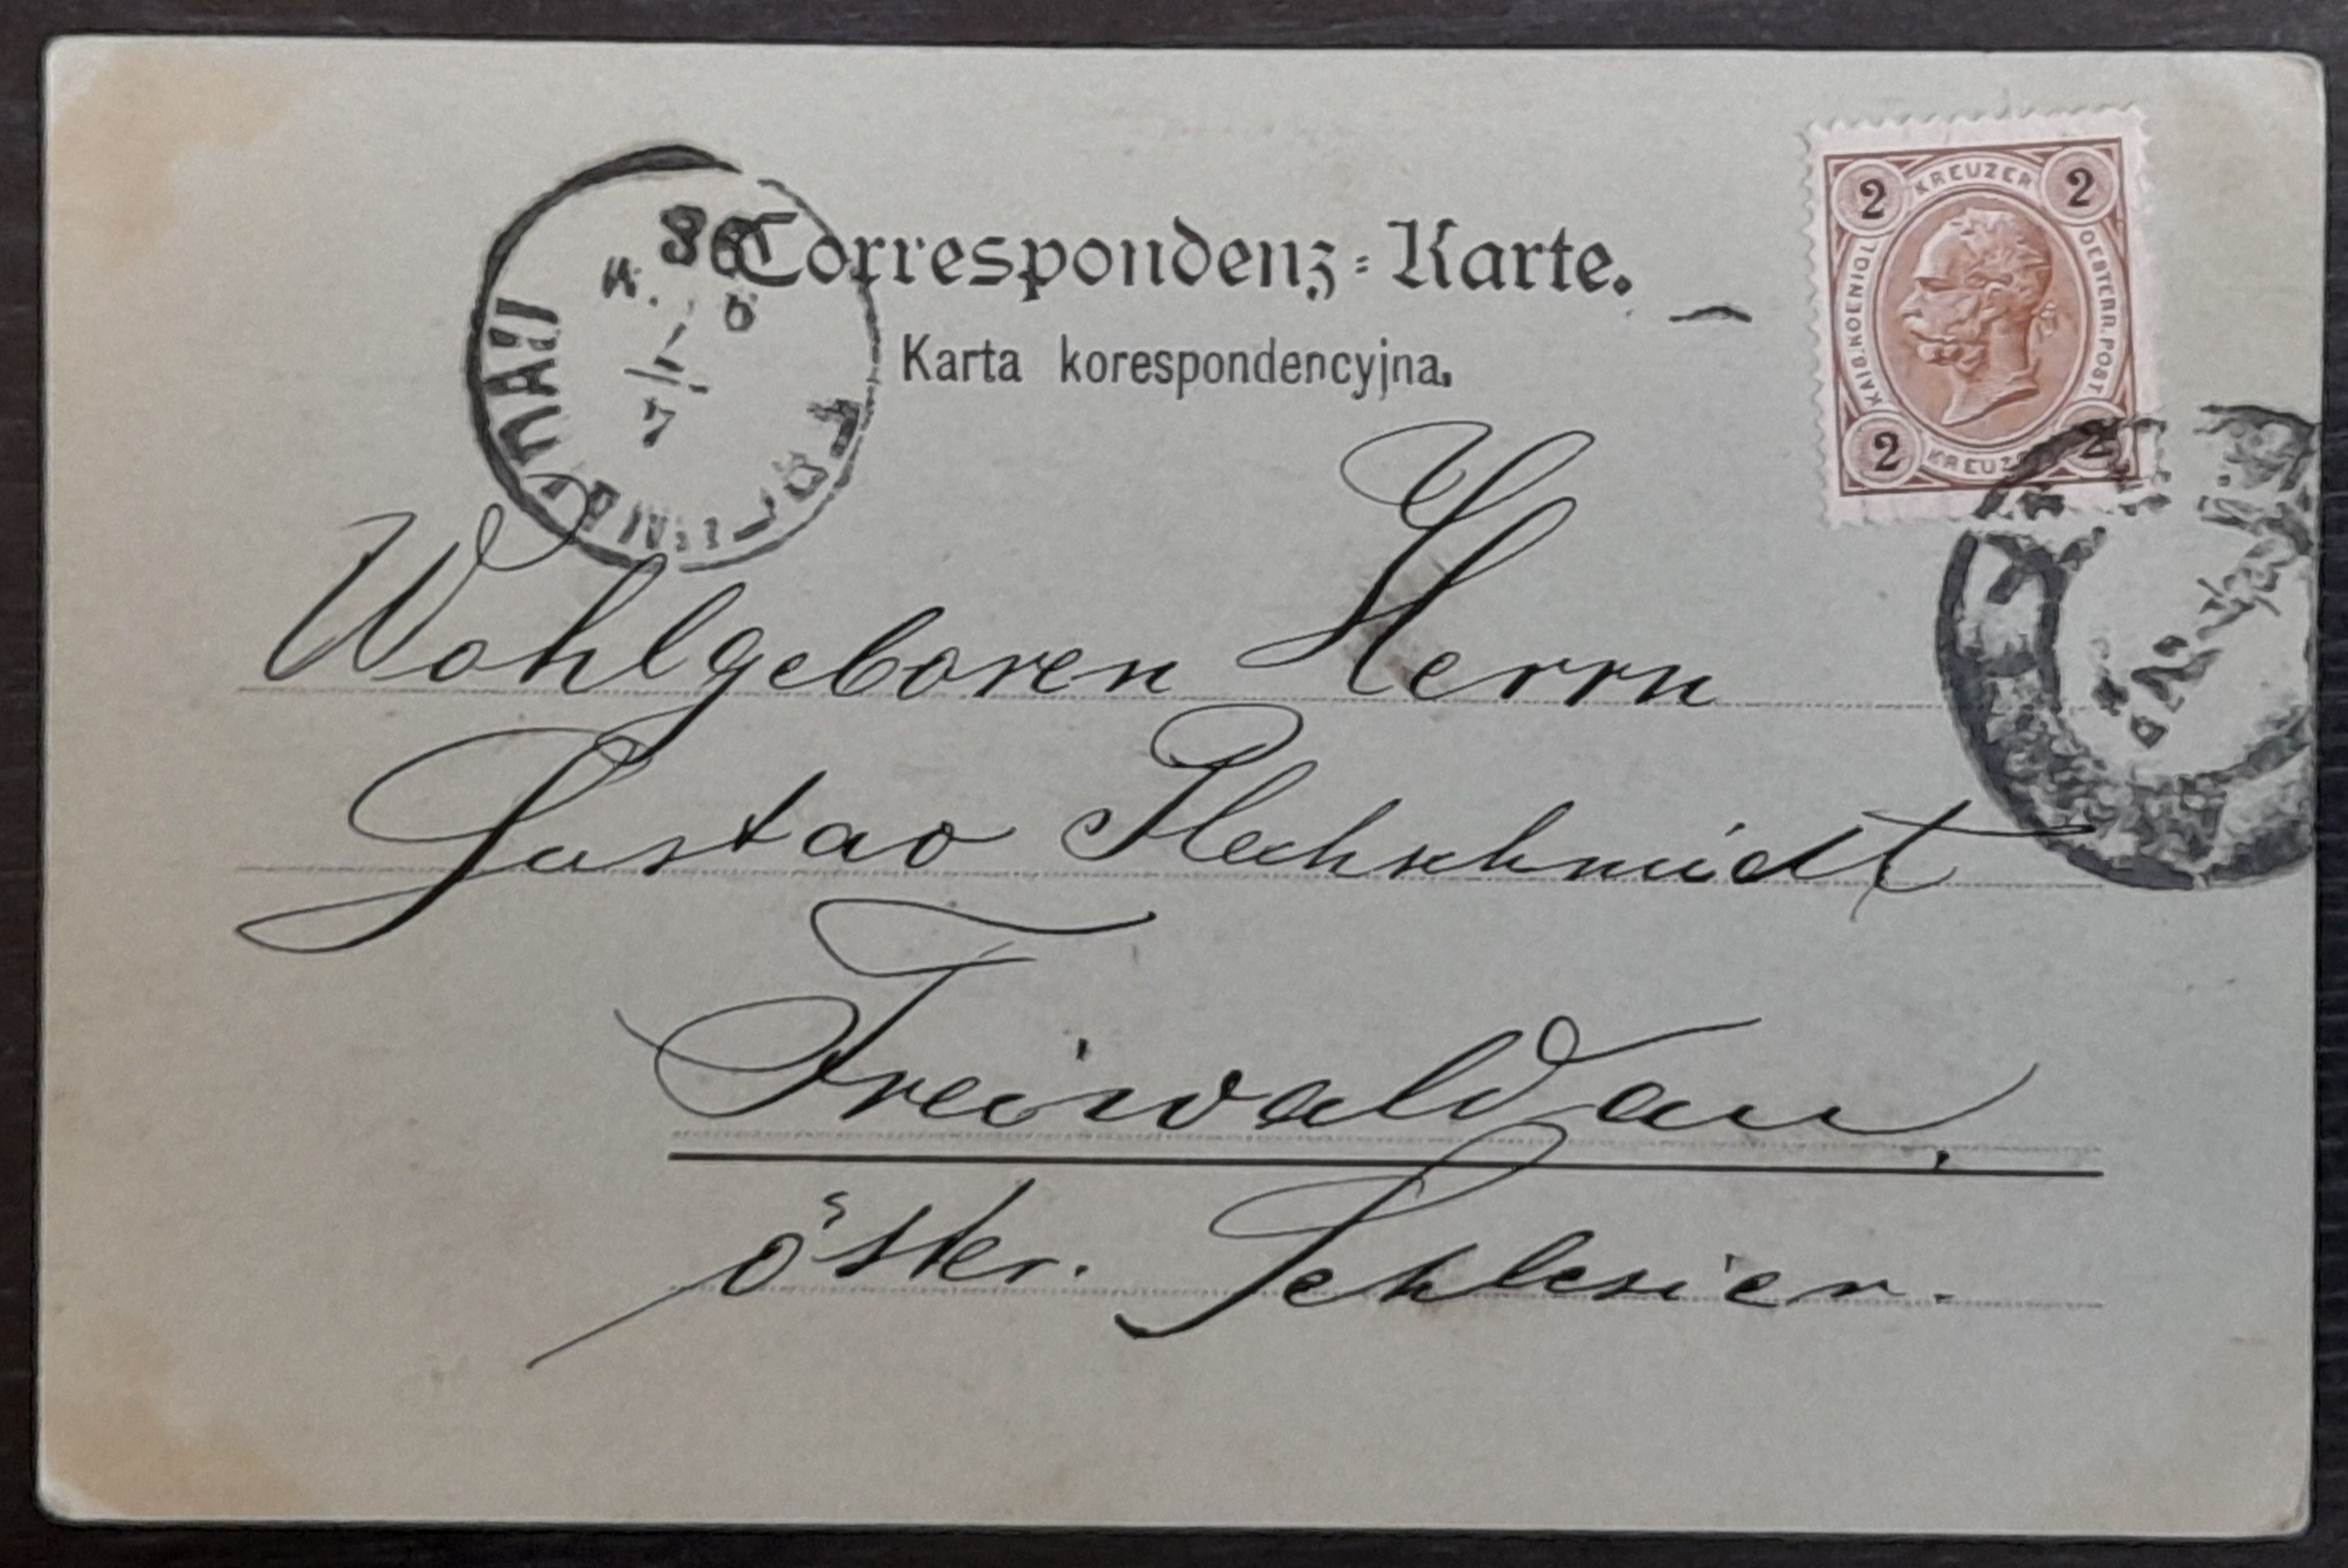 Correspondenz-Karte.
Karta korespondencyjna.
2 KREUZER 2
KAIS. KOENIGL.
OESTERR. POST
2 KREUZER 2
98
7
Wohlgeboren Herrn
Gustav Plechschmidt
Freiwaldau.
österr. Schlesien.